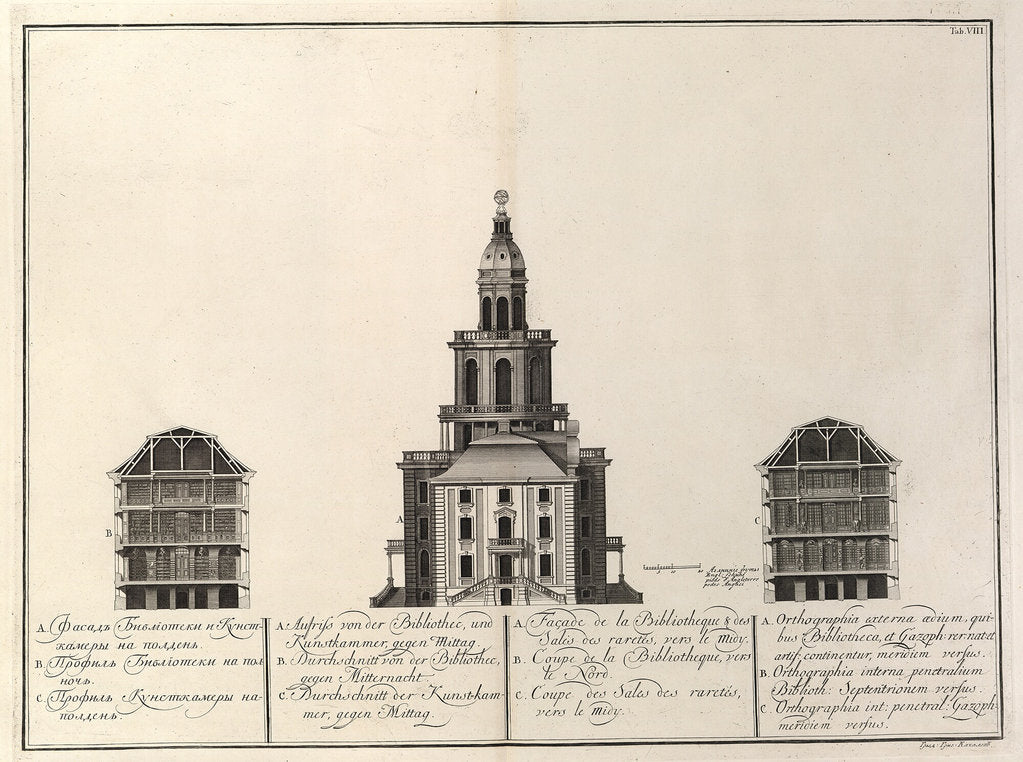 Tab. VIII
A
B
C
Аглинские футы
Engl. Schuhe
pieds d'Angleterre
pedes Anglici
A. Фасадъ Библиотеки и Кунст-
камеры на полдень.
B. Профиль Библиотеки на пол
ночь.
C. Профиль Кунсткамеры на-
полдень.
A. Aufriss von der Bibliothec, und
Kunstkammer, gegen Mittag.
B. Durchschnitt von der Bibliothec,
gegen Mitternacht.
C. Durchschnitt der Kunst-kam-
mer, gegen Mittag.
A. Façade de la Bibliotheque & des
Sales des raretés, vers le midy.
B. Coupe de la Bibliotheque, vers
le Nord.
C. Coupe des Sales des raretés,
vers le midy.
A. Orthographia externa ædium, qui-
bus Bibliotheca, et Gazoph: rer: nat: et
artif: continentur, meridiem versus.
B. Orthographia interna penetralium
Biblioth: Septentrionem versus.
C. Orthographia int: penetral: Gazoph:
meridiem versus.
Грид: Григ: Качалов.